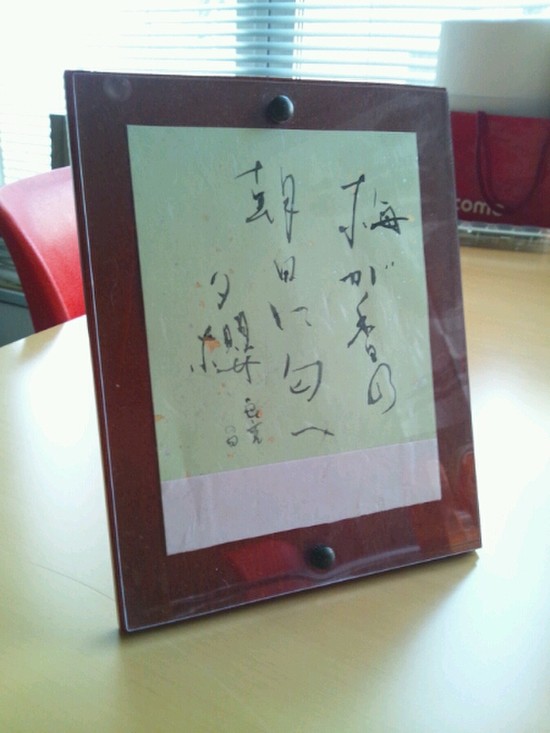 梅が香の
朝日に匂へ
夕櫻